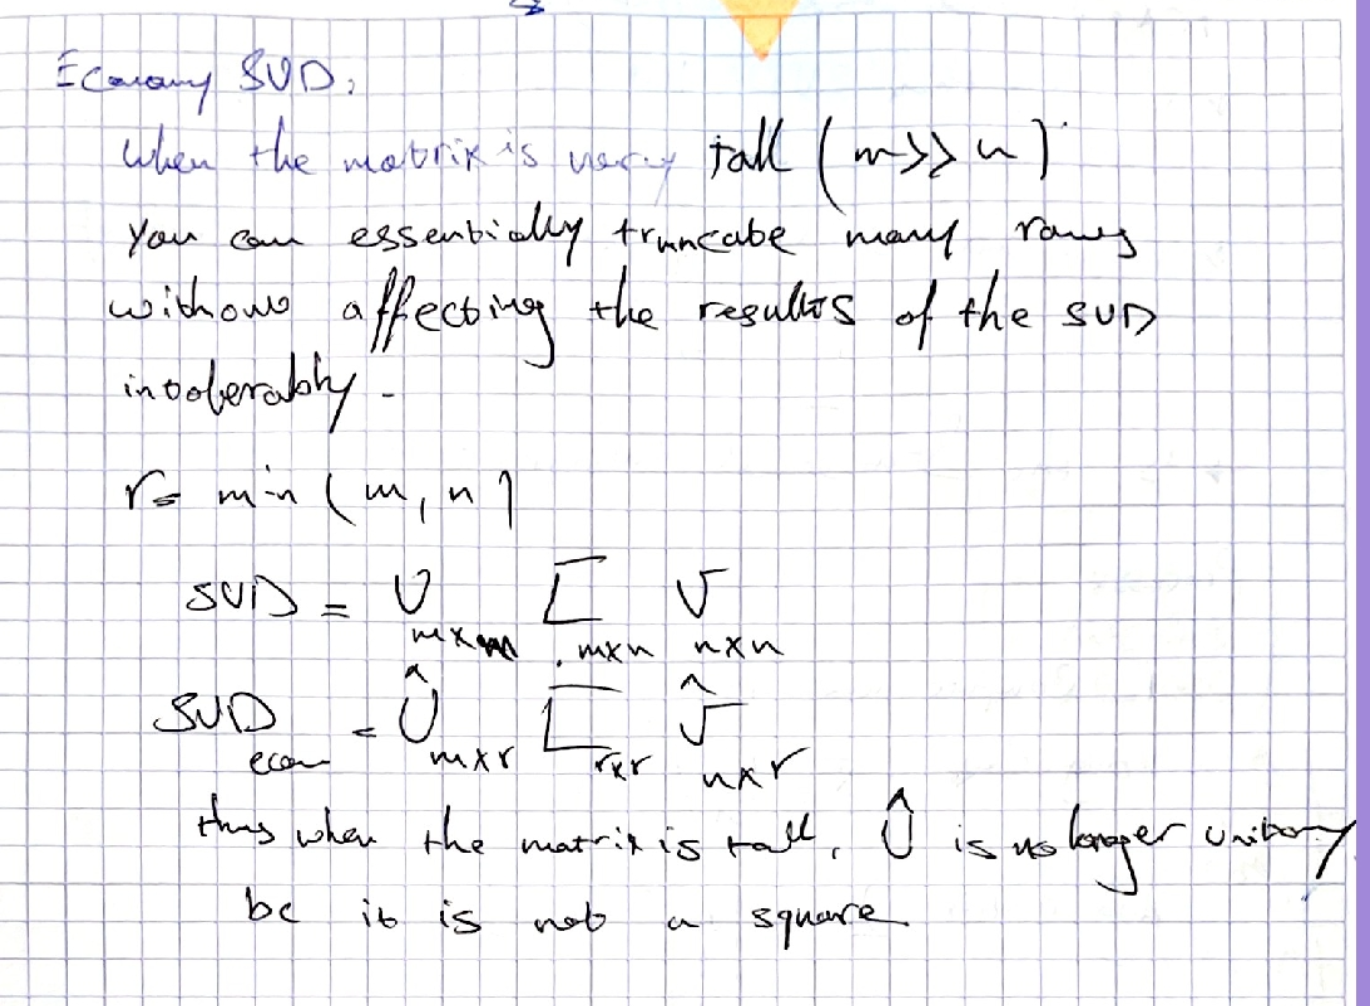 Economy SVD:
When the matrix is very tall (m >> n)
You can essentially truncate many rows
without affecting the results of the SVD
intolerably.
r = min (m, n)
SVD = U Σ V
m×m m×n n×n
SVD = Û Σ V̂
econ m×r r×r n×r
thus when the matrix is tall, Û is no longer unitary
bc it is not a square